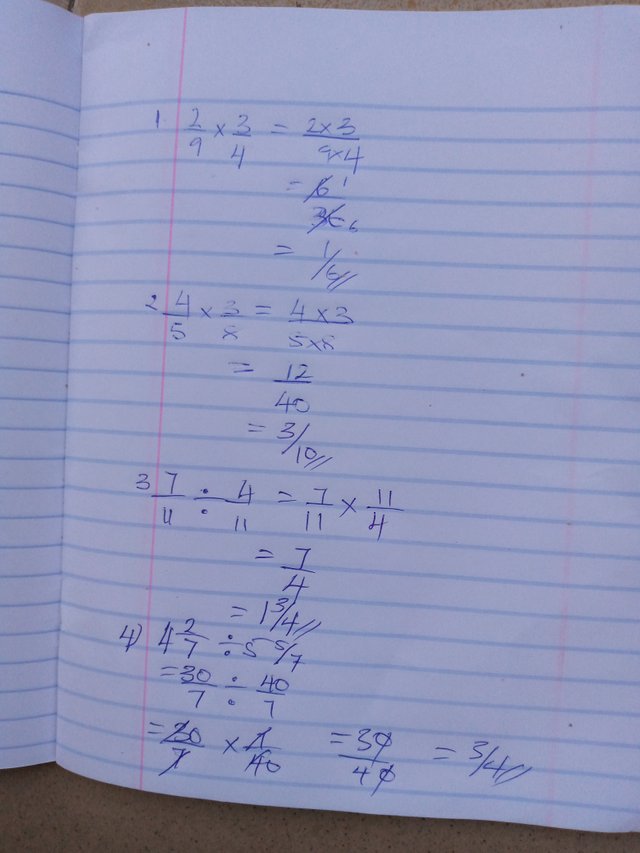 1. 2/9 × 3/4 = 2×3/9×4
= 6 1/36 6
= 1/6//
2. 4/5 × 3/8 = 4×3/5×8
= 12/40
= 3/10//
3 7/11 ÷ 4/11 = 7/11 × 11/4
= 7/4
= 1 3/4//
4) 4 2/7 ÷ 5 5/7
= 30/7 ÷ 40/7
= 30/7 × 7/40 = 30/40 = 3/4//